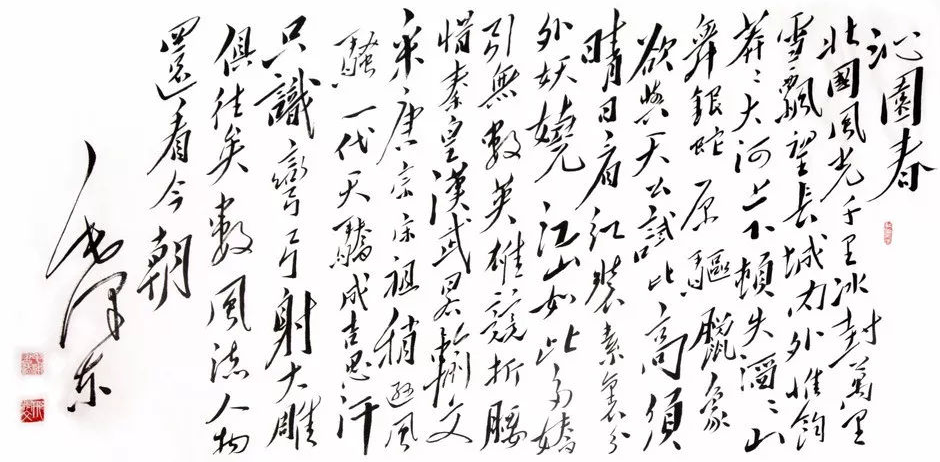 沁園春
北國風光千里冰封萬里
雪飄望長城内外惟餘
莽〻大河上下頓失滔〻山
舞銀蛇原驅臘象
欲與天公試比高須
晴日看红裝素裹分
外妖嬈江山如此多嬌
引無數英雄競折腰
惜秦皇漢武畧輸文
采唐宗宋祖稍遜風
騷一代天驕成吉思汗
只識彎弓射大雕
俱往矣數風流人物
還看今朝
毛泽东